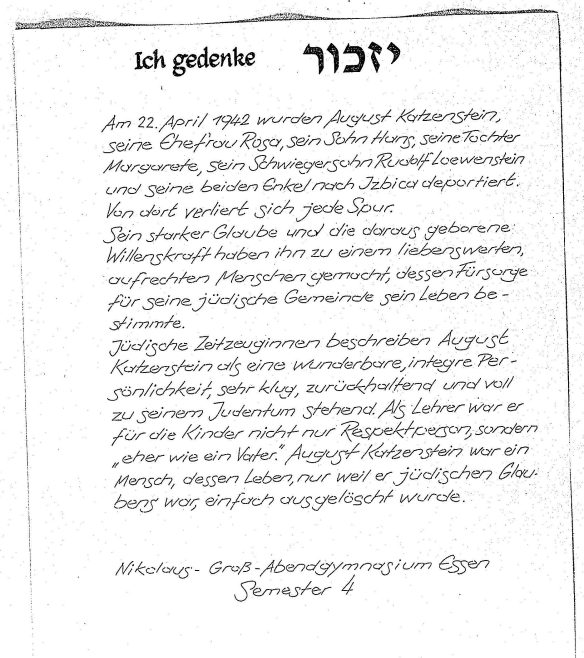 Ich gedenke יזכור
Am 22. April 1942 wurden August Katzenstein,
seine Ehefrau Rosa, sein Sohn Hans, seine Tochter
Margarete, sein Schwiegersohn Rudolf Loewenstein
und seine beiden Enkel nach Izbica deportiert.
Von dort verliert sich jede Spur.
Sein starker Glaube und die daraus geborene
Willenskraft haben ihn zu einem liebenswerten,
aufrechten Menschen gemacht, dessen Fürsorge
für seine jüdische Gemeinde sein Leben be-
stimmte.
Jüdische Zeitzeuginnen beschreiben August
Katzenstein als eine wunderbare, integre Per-
sönlichkeit, sehr klug, zurückhaltend und voll
zu seinem Judentum stehend. Als Lehrer war er
für die Kinder nicht nur Respektperson, sondern
„eher wie ein Vater." August Katzenstein war ein
Mensch, dessen Leben, nur weil er jüdischen Glau-
bens war, einfach ausgelöscht wurde.
Nikolaus-Groß-Abendgymnasium Essen
Semester 4